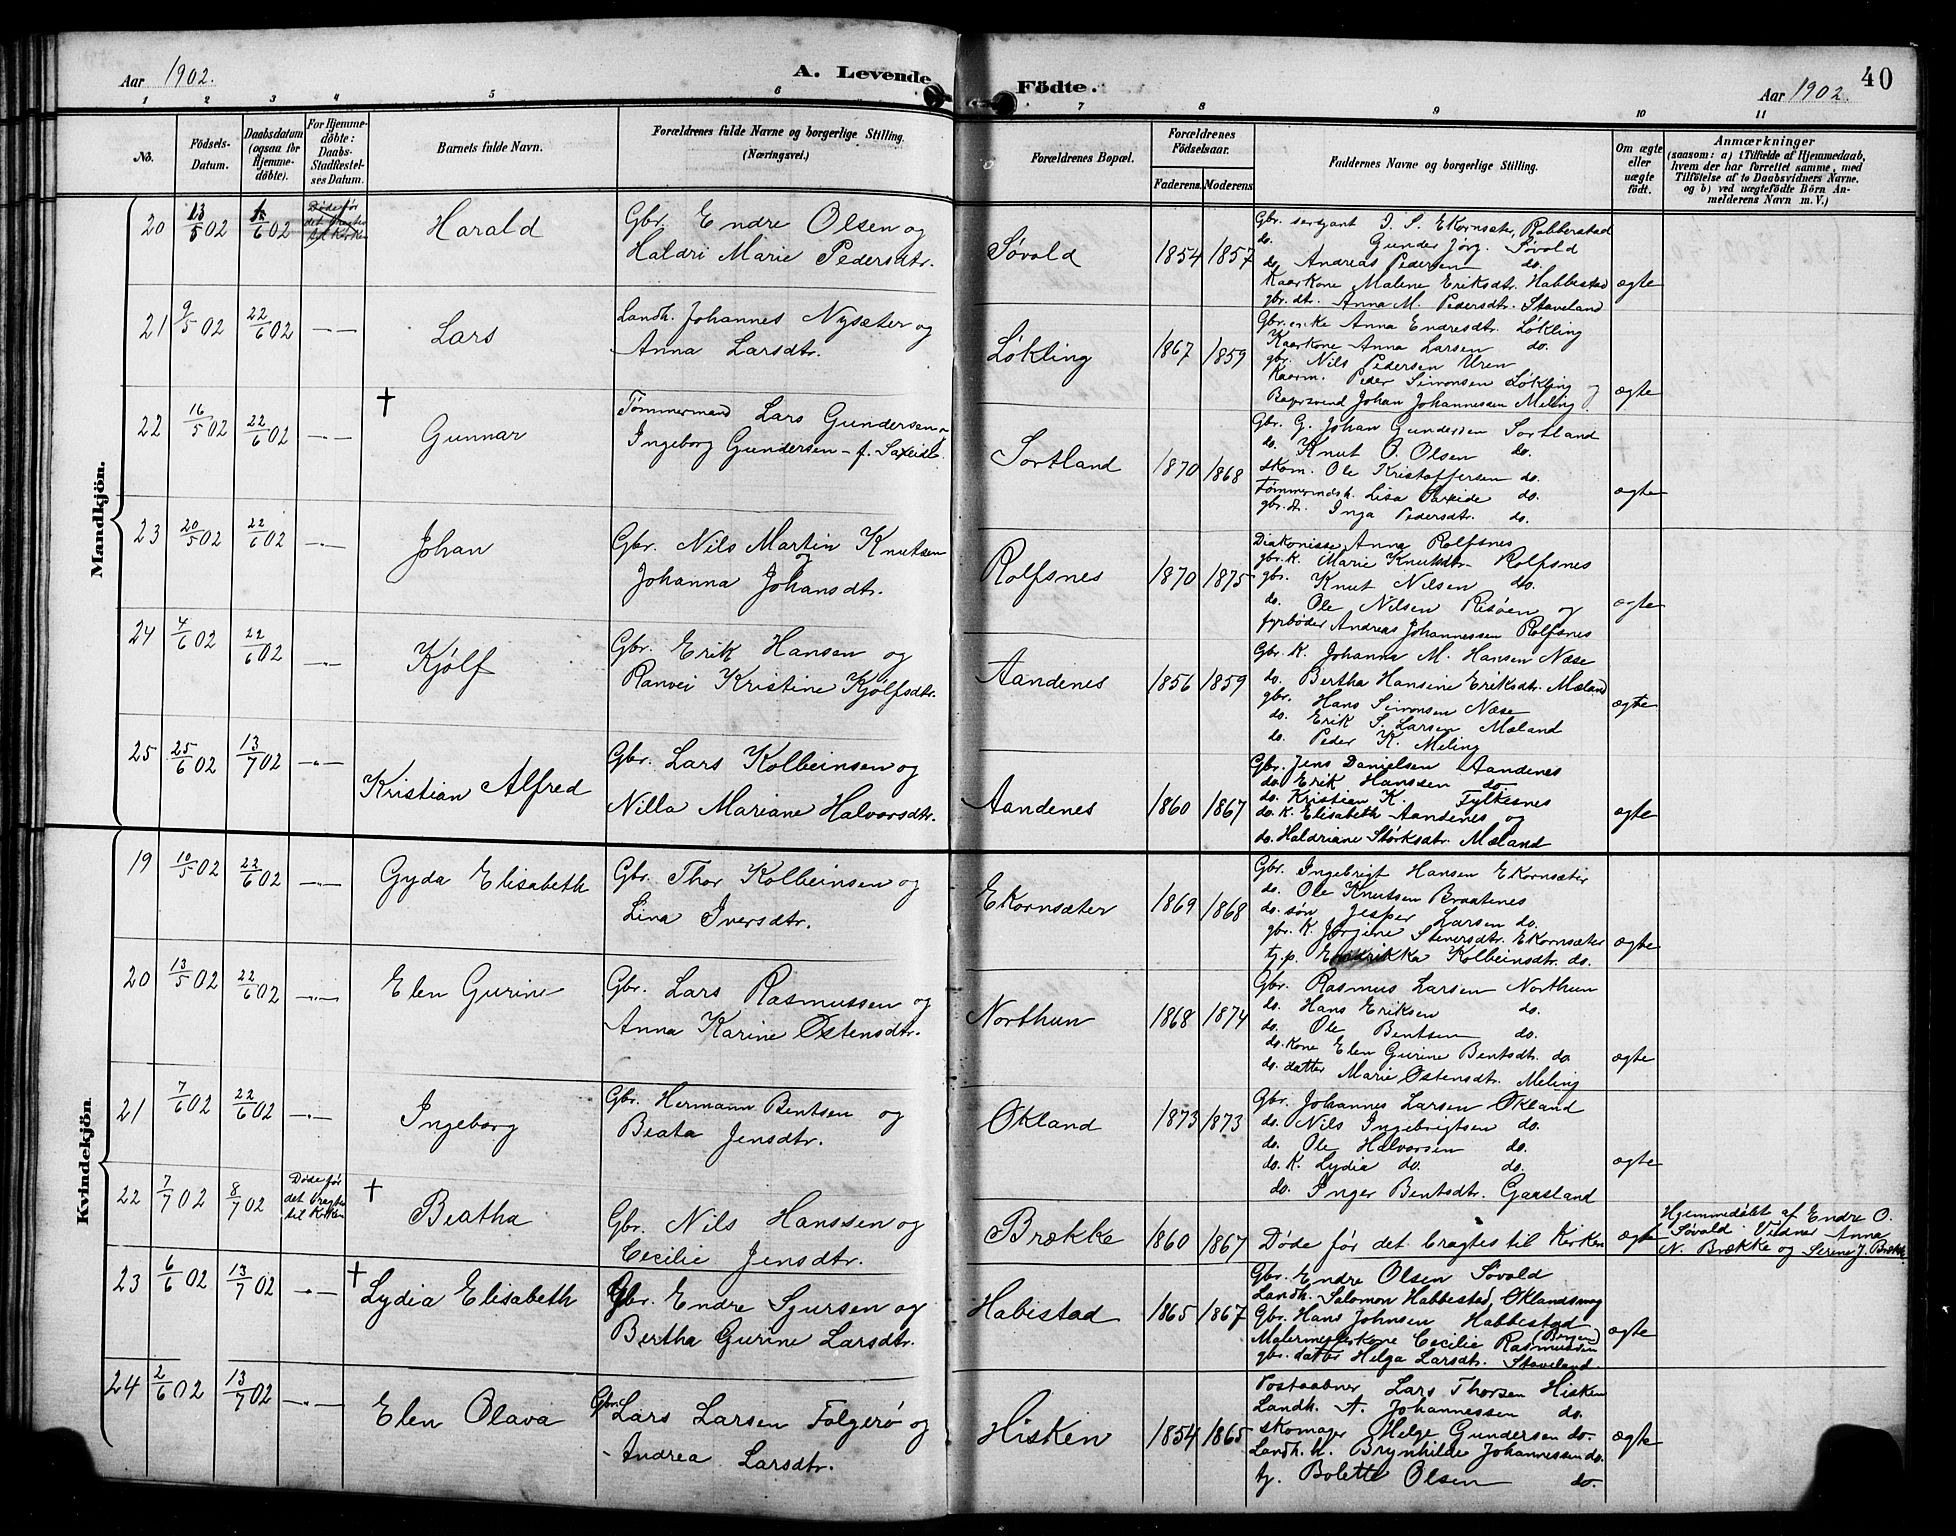 Aar 1902. A. Levende Födte. Aar 1902. 40
1 2 3 4 5 6 7 8 9 10 11
No. Födsels-Datum. Daabsdatum (ogsaa för Hjemmedöbte). For Hjemmedöbte: Daabs-Stadfæstelses Datum. Barnets fulde Navn. Forældrenes fulde Navne og borgerlige Stilling. (Næringsvei.) Forældrenes Bopæl. Forældrenes Födselsaar. Faderens. Moderens. Faddernes Navne og borgerlige Stilling. Om ægte eller uægte födt. Anmærkninger (saasom: a) i Tilfælde af Hjemmedaab, hvem der har forrettet samme, med Tilföielse af to Daabsvidners Navne. og b) ved uægtefödte Börn Anmelderens Navn m. V.)
Mandkjön.
20 13/5 02 1/6 02 Døde før det bragtes til Kirken Harald Gbr. Endre Olsen og
Haldri Marie Pedersdtr. Søvold 1854 1857 ægte
Gbr. sersjant J. S. Ekornsæter, Robberstad
do. Gunder Jörg. Søvold
do. Andreas Pedersen do.
Kaarkone Malene Eriksdtr. Habbestad
gbr. dt. Anna M. Pedersdtr. Staveland
21 9/5 02 22/6 02 -"- Lars Landh. Johannes Nysæter og
Anna Larsdtr. Løkling 1867 1859 ægte
Gbr. enke Anna Endresdtr. Løkling
Kaarkone Anna Larsen do.
gbr. Nils Pedersen Uren
Kaarm. Peder Simonsen Løkling og
Bagersvend Johan Johannessen Meling
22 16/5 02 22/6 02 -"- † Gunnar Tømmermand Lars Gundersen og
Ingeborg Gundersen - f. Saxeide. Sortland 1870 1868 ægte
Gbr. G. Johan Gundersen Sortland
do. Knut O. Olsen do.
skom. Ole Kristoffersen do.
Tømmermdsk. Lisa Saxeide do.
gbr. dt. Inga Pedersdtr. do.
23 20/5 02 22/6 02 -"- Johan Gbr. Nils Martin Knutsen og
Johanna Johansdtr. Rolfsnes 1870 1875 ægte
Diakonisse Anna Rolfsnes
gbr. k. Marie Knutsdtr. Rolfsnes
gbr. Knut Nilsen do.
do. Ole Nilsen Risøen og
fyrbøder Andreas Johannessen Rolfsnes
24 4/6 02 22/6 02 -"- Kjølf Gbr. Erik Hansen og
Ranvei Kristine Kjølfsdtr. Aandenes 1856 1859 ægte
Gbr. K. Johanna M. Hansen Næse
do. Bertha Hansine Eriksdtr. Mæland
gbr. Hans Simonsen Næse
do. Erik S. Larsen Mæland
do. Peder K. Meling
25 25/6 02 13/7 02 -"- Kristian Alfred Gbr. Lars Kolbeinsen og
Nilla Mariane Halvorsdtr. Aandenes 1860 1867 ægte
Gbr. Jens Danielsen Aandenes
do. Erik Hanssen do
do. Kristian K. Fylkesnes
do. K. Elisabeth Aandenes og
do. Haldriane Størksdtr. Mæland
Kvindekjön.
19 10/5 02 22/6 02 -"- Gyda Elisabeth Gbr. Thor Kolbeinsen og
Lina Iversdtr. Ekornsæter 1869 1868 ægte
Gbr. Ingebrigt Hansen Ekornsæter
do. Ole Knutsen Braatenes
do. søn Jesper Larsen do.
gbr. K. Jørgine Steversdtr. Ekornsæter
tj. p. Endrikka Kolbeinsdtr. do.
20 13/5 02 22/6 02 -"- Elen Gurine Gbr. Lars Rasmussen og
Anna Karine Østensdtr. Northun 1868 1874 ægte
Gbr. Rasmus Larsen Northun
do. Hans Eriksen do.
do. Ole Bentsen do.
do. kone Elen Gurine Bentsdtr. do
do. datter Marie Østensdtr. Meling
21 7/6 02 22/6 02 -"- Ingeborg Gbr. Hermann Bentsen og
Beata Jensdtr. Økland 1873 1873 ægte
Gbr. Johannes Larsen Økland
do. Nils Ingebrigtsen do.
do. Ole Halvorsen do.
do. K. Lydia do. do.
do. Inger Bentsdtr. Gaasland
22 7/7 02 8/7 02 Døde før det bragtes til Kirken † Beatha Gbr. Nils Hanssen og
Cecilie Jensdtr. Brække 1860 1867 Døde før det bragtes til Kirken ægte
Hjemmedøbt af Endre O.
Søvold. Vidner Anna
N. Brække og Serene J. Brække
23 6/6 02 13/7 02 -"- † Lydia Elisabeth Gbr. Endre Sjursen og
Bertha Gurine Larsdtr. Habistad 1865 1867 ægte
Gbr. Endre Olsen Søvold
Landh. Salomon Habbestad, Øklandsvag
Gbr. Hans Johnsen Habbestad
Malermesterkone Cecilie Rasmussen (Bergen)
gbr. datter Helga Larsdtr. Staveland.
24 2/6 02 13/7 02 -"- Elen Olava Gbr. Lars Larsen Folgerø og
Andrea Larsdtr. Hisken 1854 1865 ægte
Postaabner Lars Thorsen Hisken
Landh. A. Johannessen do.
skomager Helge Gundersen do.
Landh. k. Brynhilde Johannessen do.
tj. Bolette Olsen do.